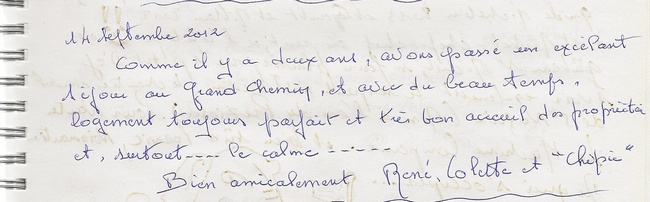 14 Septembre 2012
Comme il y a deux ans, avons passé un excélant
séjour au Grand Chemin, et avec du beau temps.
logement toujours parfait et très bon accueil des propriétai
et, surtout---- le calme ------
Bien amicalement René, Colette et "Chipie"